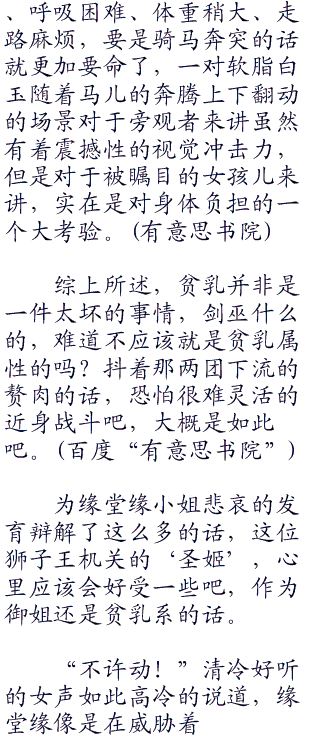 、呼吸困难、体重稍大、走
路麻烦，要是骑马奔突的话
就更加要命了，一对软脂白
玉随着马儿的奔腾上下翻动
的场景对于旁观者来讲虽然
有着震撼性的视觉冲击力，
但是对于被瞩目的女孩儿来
讲，实在是对身体负担的一
个大考验。(有意思书院)
综上所述，贫乳并非是
一件太坏的事情，剑巫什么
的，难道不应该就是贫乳属
性的吗？抖着那两团下流的
赘肉的话，恐怕很难灵活的
近身战斗吧，大概是如此
吧。(百度“有意思书院”)
为缘堂缘小姐悲哀的发
育辩解了这么多的话，这位
狮子王机关的‘圣姬’，心
里应该会好受一些吧，作为
御姐还是贫乳系的话。
“不许动！”清冷好听
的女声如此高冷的说道，缘
堂缘像是在威胁着